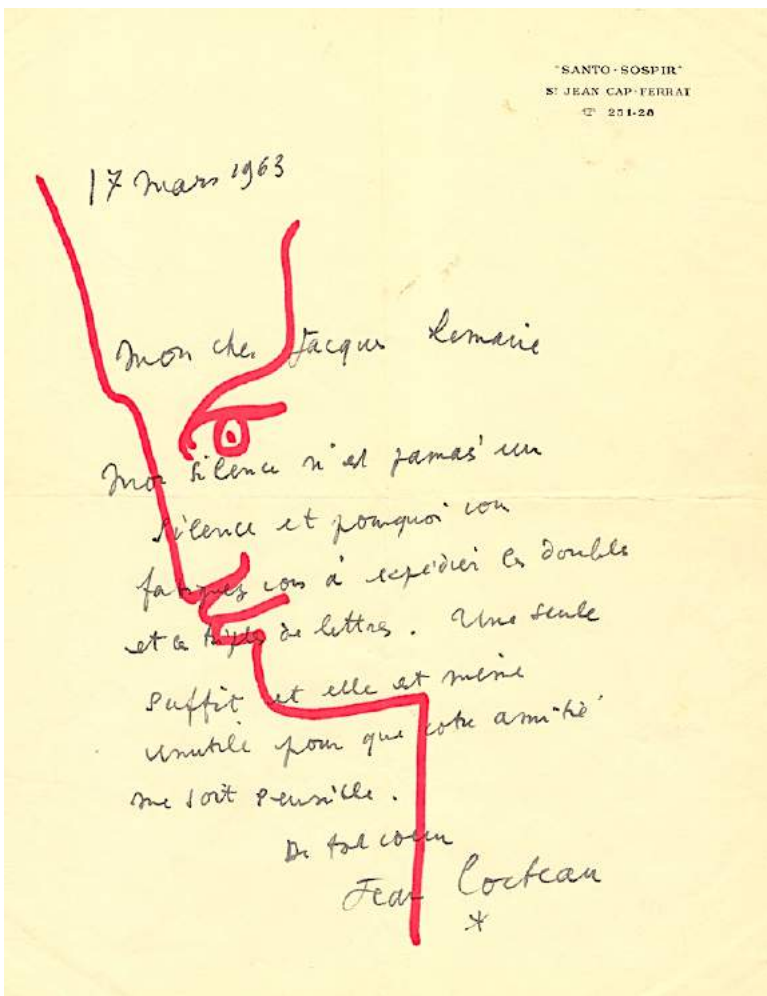 "SANTO-SOSPIR"
St JEAN CAP-FERRAT
☏ 251-28
17 mars 1963
Mon cher Jacques Lemarie
Mon silence n'est jamais un
silence et pourquoi vous
fatiguez vous à expédier les doubles
et les triples de lettres. Une seule
suffit et elle est même
inutile pour que votre amitié
me soit sensible.
De tout cœur
Jean Cocteau
*